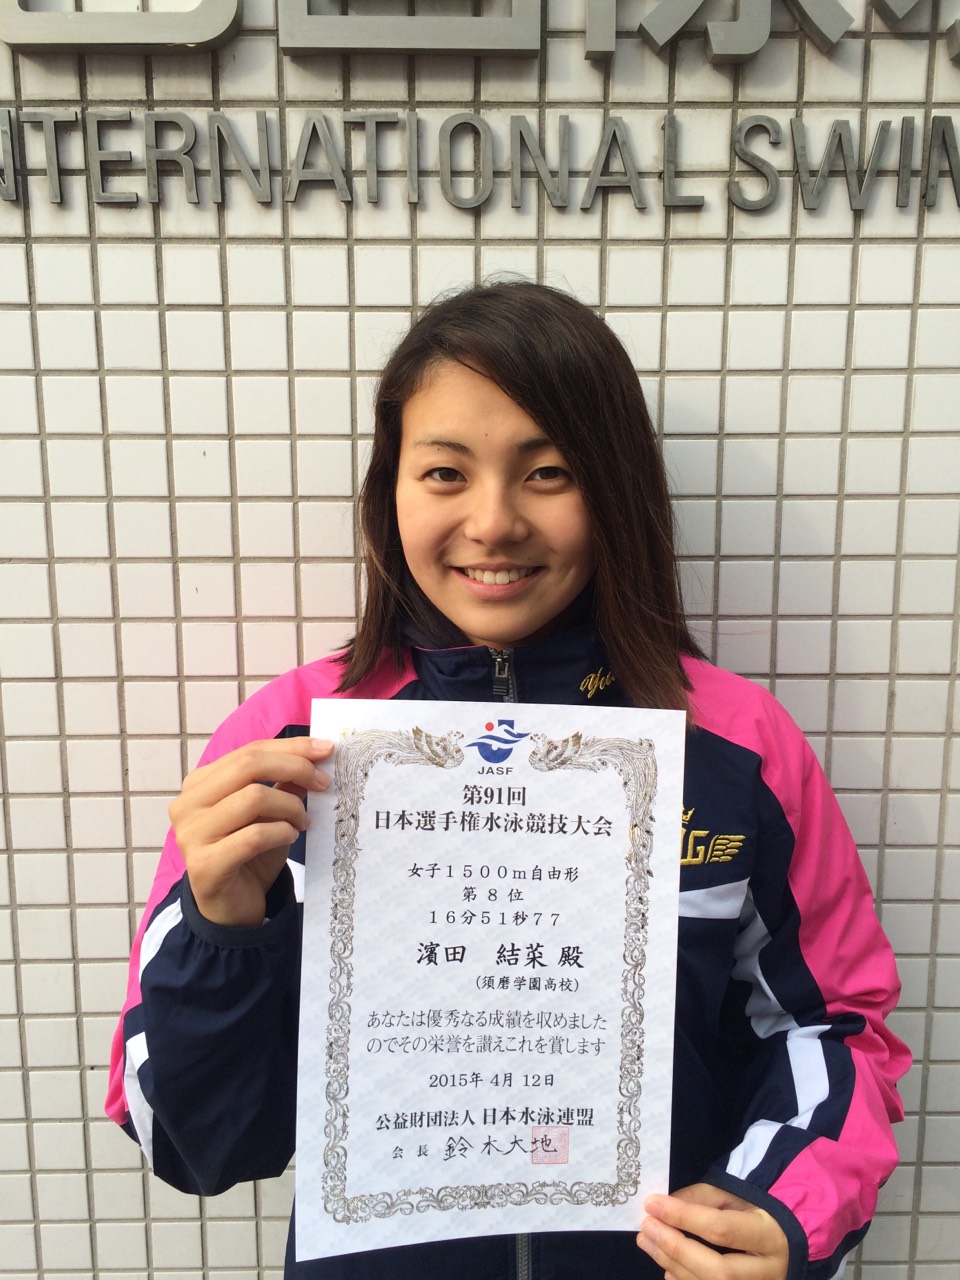 INTERNATIONAL SWIM
Yu
JASF
第91回
日本選手権水泳競技大会
女子1500m自由形
第 8 位
16分51秒77
濱田 結菜 殿
(須磨学園高校)
あなたは優秀なる成績を収めました
のでその栄誉を讃えこれを賞します
2015年 4月 12日
公益財団法人 日本水泳連盟
会 長 鈴木大地